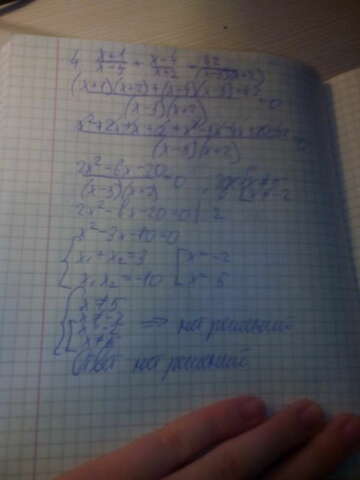 4. (x+1)/(x-5) + (x-4)/(x+2) = 42/((x-5)(x+2))
((x+1)(x+2)+(x-4)(x-5)-42)/((x-5)(x+2)) = 0
(x²+2x+x+2+x²-5x-4x+20-42)/((x-5)(x+2)) = 0
(2x²-6x-20)/((x-5)(x+2)) = 0, x≠5 x≠-2
2x²-6x-20=0 |:2
x²-3x-10=0
x₁+x₂=3 x=-2
x₁x₂=-10 x=5
x≠5
x≠-2
x=-2
x=5 => нет решений
Ответ нет решений